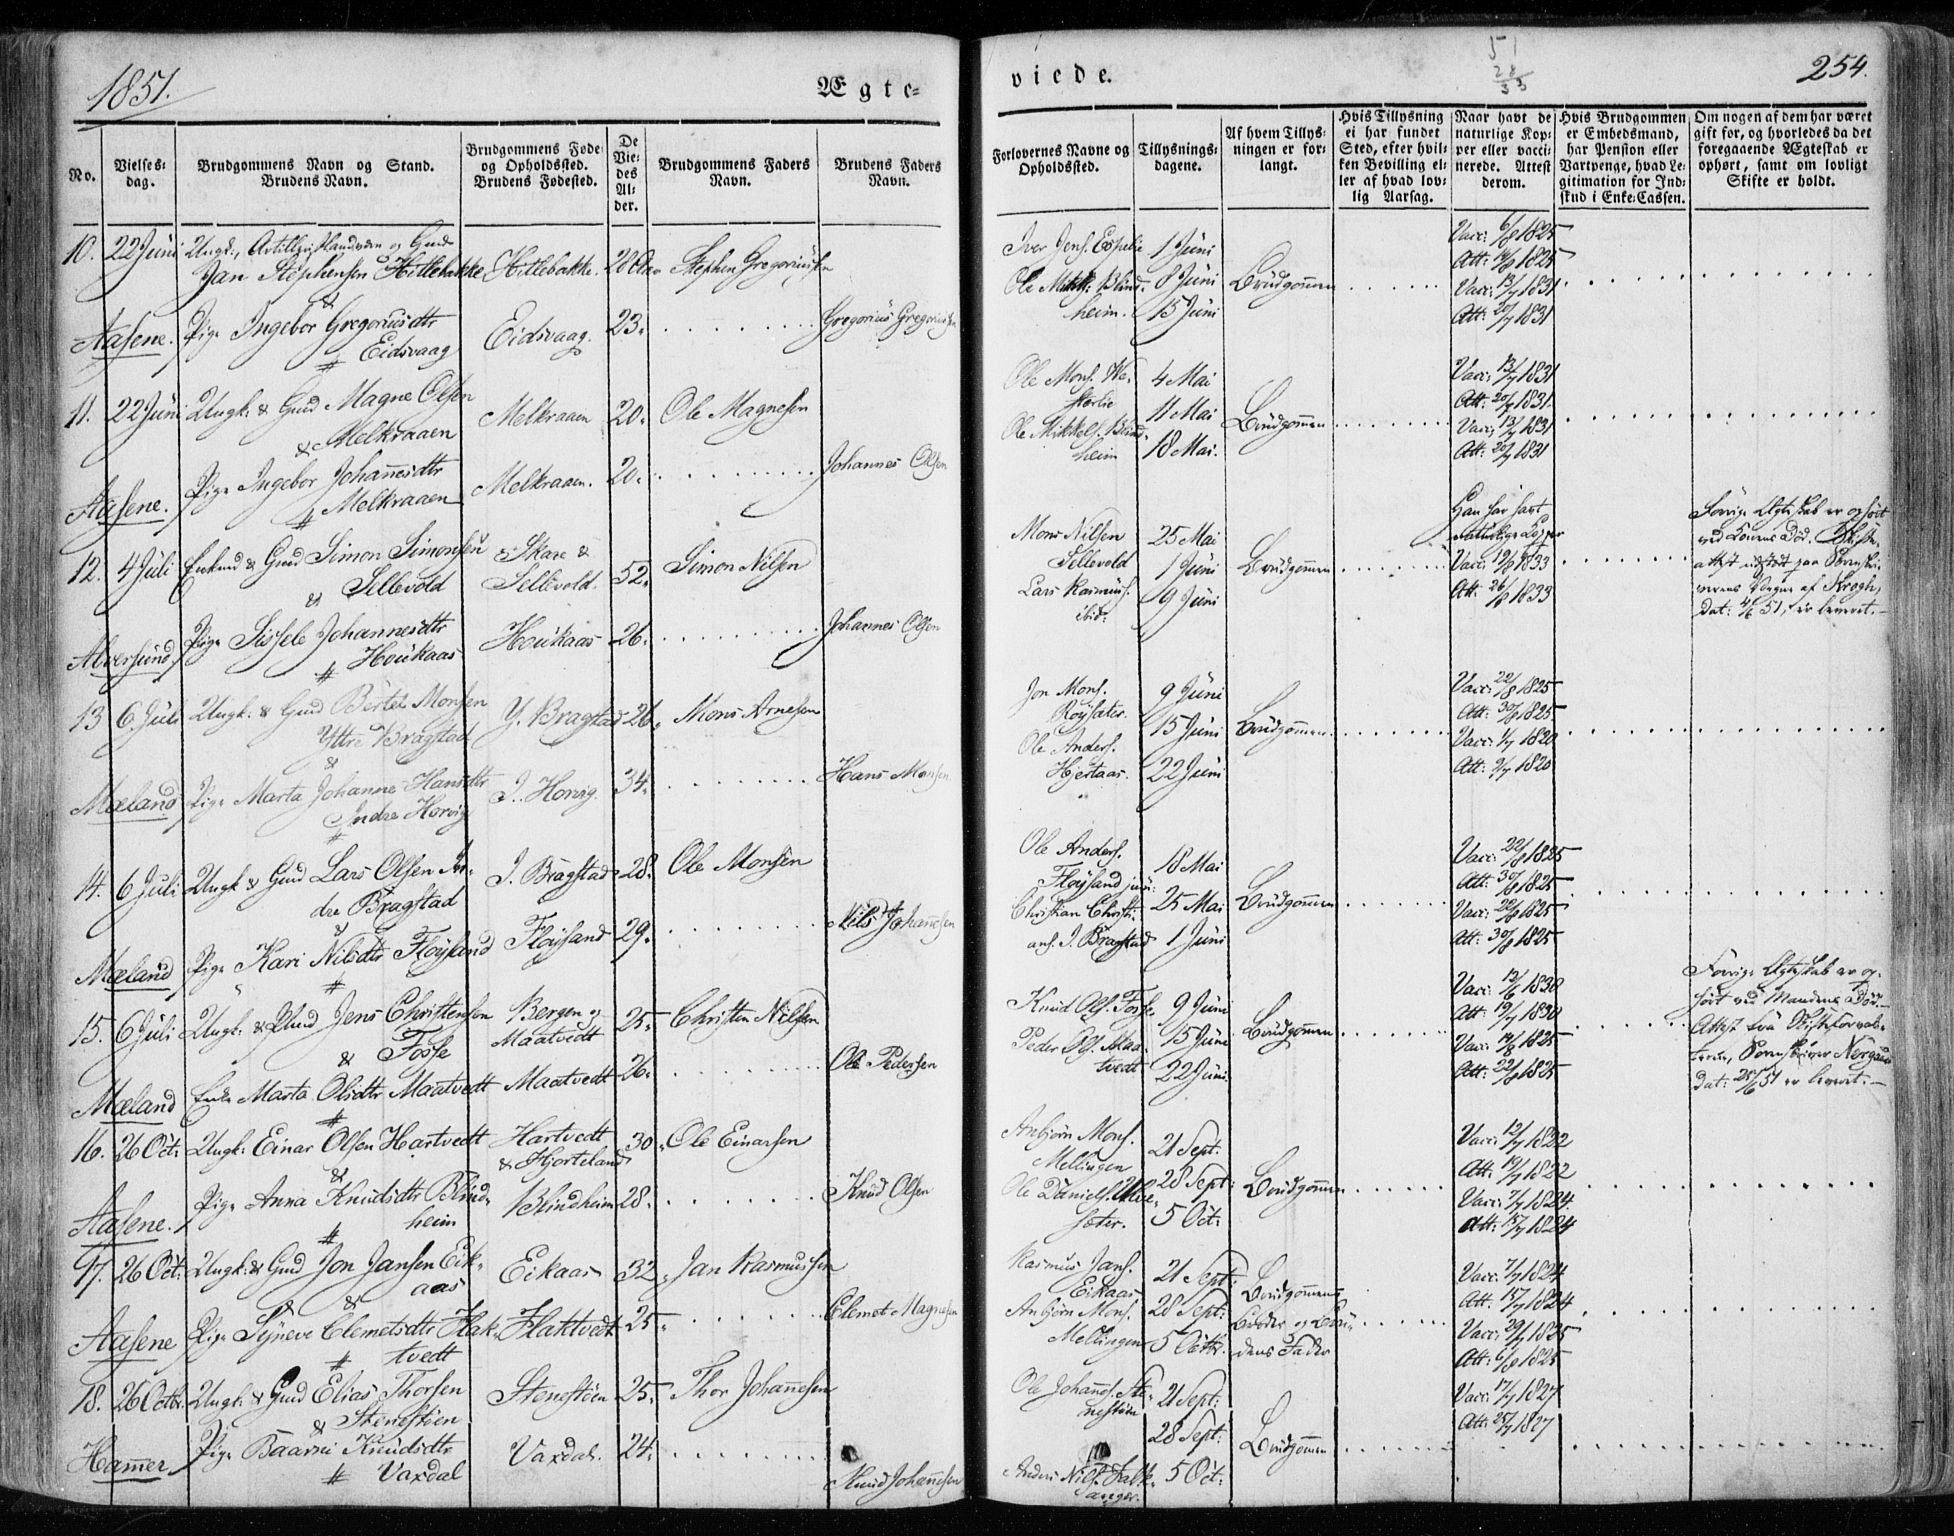 1851.
Ægte-
No.
Vielses-
dag.
Brudgommens Navn og Stand.
Brudens Navn.
Brudgommens Føde
og Opholdssted.
Brudens Fødested.
De
Vie-
des
Al-
der.
Brudgommens Faders
Navn.
Brudens Faders
Navn.
10. 22 Juni Ungk:, Artilleri Landværn og Gmd
Jan Stephensen Hillebakke Hillebakke. 28 Stephen Gregoriussen
&
Aasene. Pige Ingebor Gregoriusdtr Eidsvaag. 23. Gregorius Gregoriussen
# Eidsvaag
11. 22 Juni Ungk: & Gmd Magne Olsen Melkraaen 20. Ole Magnesen
& Melkraaen
Aasene. Pige Ingebor Johannesdtr Melkraaen. 20. Johannes Olsen
# Melkraaen
12. 4 Juli Enkmd & Gmd Simon Simonsen Skare & 52. Simon Nilsen
& Sellevold Sellevold.
Alversund Pige Sissele Johannesdtr Houkaas 26. Johannes Olsen
# Houkaas
13 6 Juli Ungk: & Gmd Bertel Monsen Y. Bragstad 26. Mons Arnesen
Yttre Bragstad
&
Mæland Pige Marta Johanne Hansdtr I. Horvig. 34. Hans Monsen
Indre Horvig
#
14. 6 Juli Ungk & Gmd Lars Olsen In- I. Bragstad 28. Ole Monsen
dre Bragstad
&
Mæland Pige Kari Nilsdtr Fløysand Fløysand 29. Nils Johannesen
#
15. 6 Juli Ungk: & Jens Christensen Bergen og 25. Christen Nilsen
& Fosse Maatvedt
Mæland Enke Marta Olsdtr Maatvedt Maatvedt 26. Ole Pedersen
#
16. 26 Oct: Ungk: Einar Olsen Hartvedt Hartvedt 30. Ole Einarsen
& & Hjorteland
Aasene. Pige Anna Knudsdtr Blind- Blindheim 28. Knud Olsen
# heim
17. 26 Oct: Ungk: & Gmd Jon Jansen Eik- Eikaas 32. Jan Rasmussen
aas
&
Aasene Pige Synneve Clemetsdtr Flak- Flaktvedt 25. Clemet Magnesen
# tvedt
18. 26 Octbr. Ungk: & Gmd Elias Thorsen Stenestøen 25. Thor Johannesen
& Stenestøen
Hammer. Pige Baarni Knudsdtr Vaxdal. 24. Knud Johannesen
# Vaxdal
viede.
51
28
33
254.
Forlovernes Navne og
Opholdssted.
Tillysnings-
dagene.
Af hvem Tillys-
ningen er for-
langt.
Hvis Tillysning
ei har fundet
Sted, efter hvil-
ken Bevilling el-
ler af hvad lov-
lig Aarsag.
Naar havt de
naturlige Kop-
per eller vacci-
nerede. Attest
derom.
Hvis Brudgommen
er Embedsmand,
har Pension eller
Vartpenge, hvad Le-
gitimation for Ind-
skud i Enke-Cassen.
Om nogen af dem har været
gift før, og hvorledes da det
foregaaende Ægteskab er
ophørt, samt om lovligt
Skifte er holdt.
Iver Jens. Espelie 1 Juni Vacc: 6/8 1825
Att: 1825
Ole Mikk: Blind- 8 Juni Brudgommen Vacc: 13/7 1831
heim. 15 Juni Att: 20/7 1831
Ole Mons. We- 4 Mai Vacc: 13/7 1831
11 Mai Brudgommen Att: 20/7 1831
Ole Mikkels. Blind- Vacc: 13/7 1831
heim 18 Mai. Att: 20/7 1831
Mons Nilsen 25 Mai Han har havt
Sellevold naturlige Kopper
1 Juni Brudgommen Vacc: 19/8 1833
Lars Rasmus. 9 Juni Att: 26/8 1833
ibid:
Forrige Ægteskab er ophørt
ved Konens Død. Skifte-
attest udstedt paa Sorenskri-
verens Vegne af Krogh,
dat: 4/6 51, er leveret.
Jon Mons. 9 Juni Vacc: 22/8 1825
Røysæter. Att: 30/8 1825
15 Juni Brudgommen Vacc: 1/7 1820
Ole Anders. Att: 9/7 1820
Hjertaas. 22 Juni
Ole Anders. 18 Mai Vacc: 22/8 1825
Fløysand jun: Att: 30/8 1825
Christian Christi- 25 Mai Brudgommen Vacc: 22/8 1825
ans. I. Bragstad 1 Juni Att: 30/8 1825
Knud Ols. Fosse 9 Juni Vacc: 12/6 1830
15 Juni Brudgommen Att: 19/7 1830
Peder Ols. Maa- Vacc: 14/8 1825
tvedt 22 Juni Att: 22/8 1825
Forrige Ægteskab er op-
hørt ved Mandens Død.
Attest fra Skifteforval-
teren, Sorenskriver
dat: 25/6 51 er leveret.
Anbjørn Mons. 21 Sept. Vacc: 12/7 1822
Mellingen Att: 19/7 1822
Ole Daniels. 28 Sept: Brudgommen Vacc: 7/7 1824.
sæter. 5 Oct: Att: 15/7 1824
Rasmus Jans. 21 Sept: Brudgommens Vacc: 7/7 1824
Eikaas Att: 15/7 1824
Anbjørn Mons. 28 Sept: Broder og Bru- Vacc: 29/7 1825
Mellingen 5 Octbr. dens Fader Att: 6/8 1825
Ole Johannes. Ste- 21 Sept: Vacc: 17/7 1827
nestøen Att: 25/7 1827
28 Sept: Brudgommen
Anders Nils. Falk- 5 Oct:
anger.